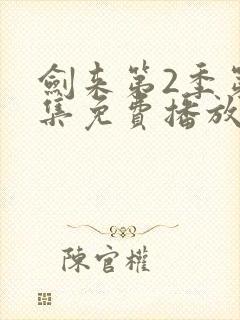 劍来第2季第
集免費播放
陳官權